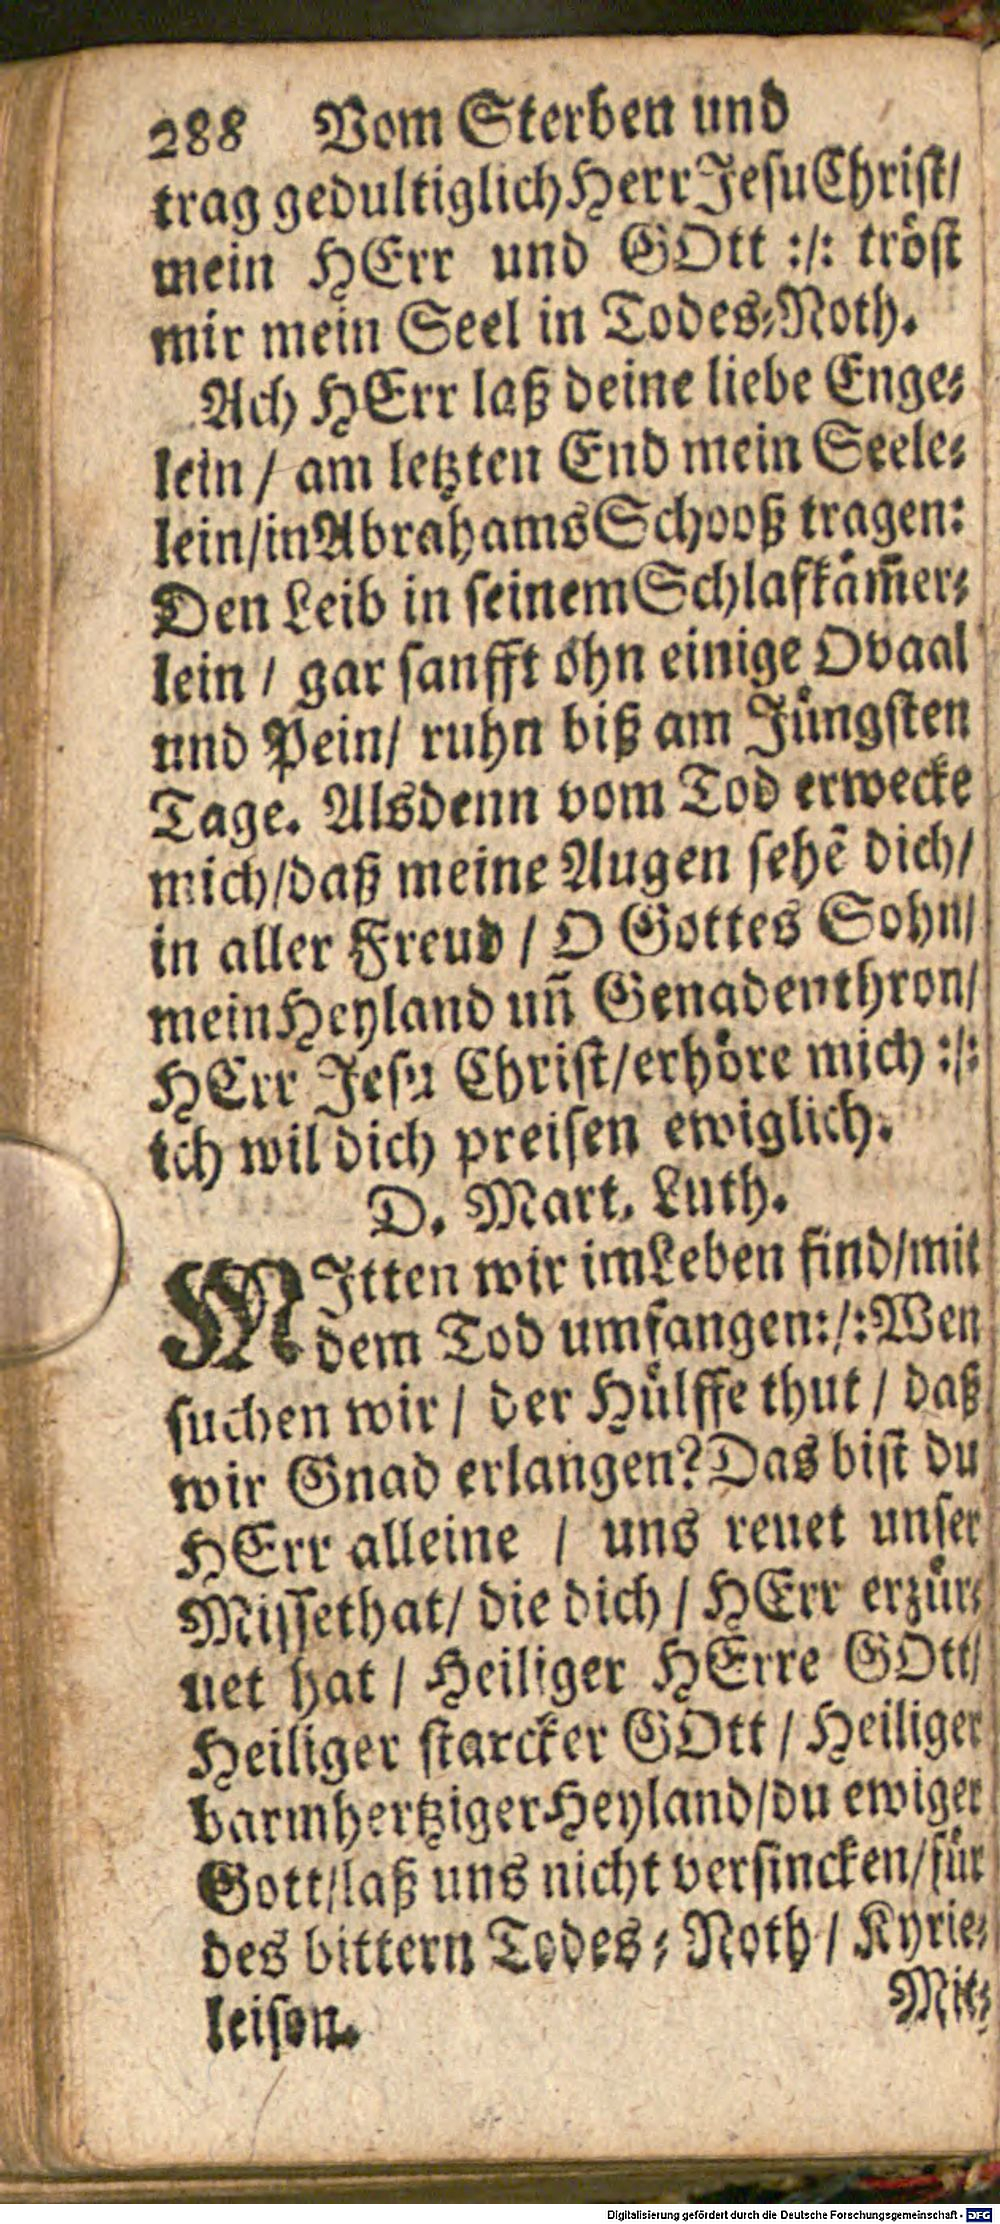 288 Vom Sterben und
trag gedultiglich Herr Jesu Christ/
mein HErr und GOtt :/: tröst
mir mein Seel in Todes-Noth.
Ach HErr laß deine liebe Enge-
lein / am letzten End mein Seele-
lein/in Abrahams Schooß tragen:
Den Leib in seinem Schlafkäm̃er-
lein / gar sanfft ohn einige Qvaal
und Pein/ ruhn biß am Jüngsten
Tage. Alsdenn vom Tod erwecke
mich/daß meine Augen sehẽ dich/
in aller Freud / O Gottes Sohn/
mein Heyland uñ Genadenthron/
HErr Jesu Christ/erhöre mich :/:
ich wil dich preisen ewiglich.
D. Mart. Luth.
MItten wir im Leben sind/mit
dem Tod umfangen:/:Wen
suchen wir / der Hülffe thut / daß
wir Gnad erlangen? Das bist du
HErr alleine / uns reuet unser
Missethat/ die dich / HErr erzür-
net hat / Heiliger HErre GOtt/
Heiliger starcker GOtt / Heiliger
barmhertziger Heyland/du ewiger
Gott/laß uns nicht versincken/für
des bittern Todes-Noth / Kyrie-
leison.
Mit-
Digitalisierung gefördert durch die Deutsche Forschungsgemeinschaft - DFG